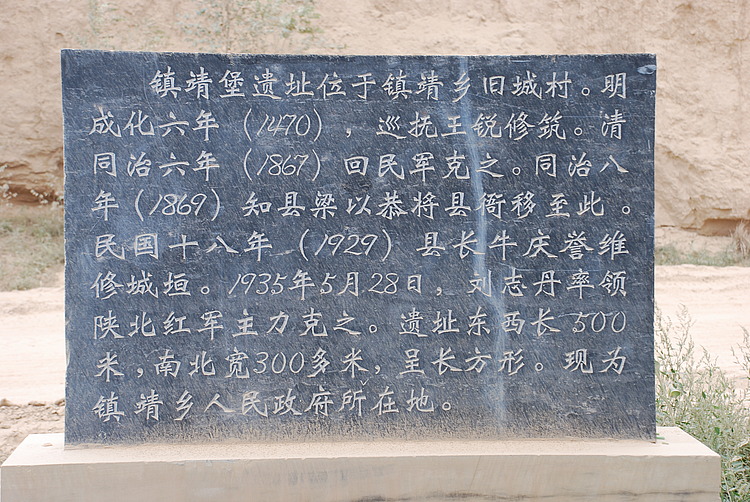 镇靖堡遗址位于镇靖乡旧城村。明
成化六年（1470），巡抚王锐修筑。清
同治六年（1867）回民军克之。同治八
年（1869）知县梁以恭将县衙移至此。
民国十八年（1929）县长牛庆誉维
修城垣。1935年5月28日，刘志丹率领
陕北红军主力克之。遗址东西长500
米，南北宽300多米，呈长方形。现为
镇靖乡人民政府所在地。